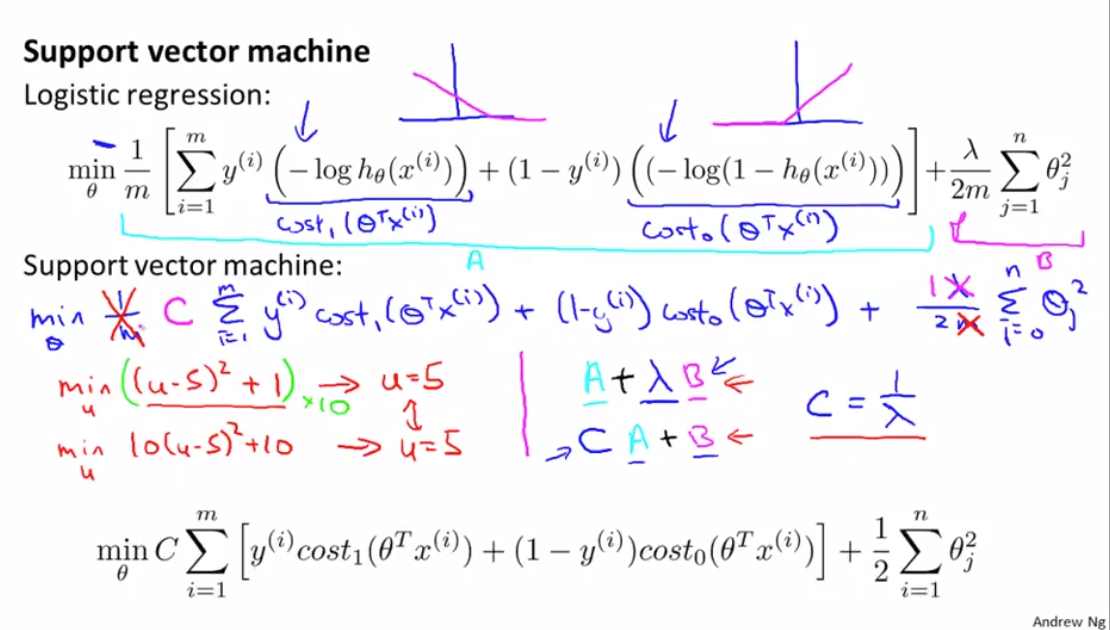 Support vector machine
Logistic regression:
min_θ 1/m [ ∑_{i=1}^{m} y^{(i)} (−log h_θ(x^{(i)})) + (1 − y^{(i)}) ((−log(1 − h_θ(x^{(i)}))) ] + λ/2m ∑_{j=1}^{n} θ_j^2
cost₁(θᵀx^{(i)}) cost₀(θᵀx^{(i)})
A B
Support vector machine:
min_θ 1/m C ∑_{i=1}^{m} y^{(i)} cost₁(θᵀx^{(i)}) + (1−y^{(i)}) cost₀(θᵀx^{(i)}) + 1 λ/2m ∑_{i=0}^{n} θ_j^2
min_u ((u-5)² + 1) ×10 → u=5 A + λ B ←
min_u 10(u-5)²+10 → u=5 → C A + B ← C = 1/λ
min_θ C ∑_{i=1}^{m} [ y^{(i)}cost₁(θᵀx^{(i)}) + (1 − y^{(i)})cost₀(θᵀx^{(i)}) ] + 1/2 ∑_{i=1}^{n} θ_j^2
Andrew Ng